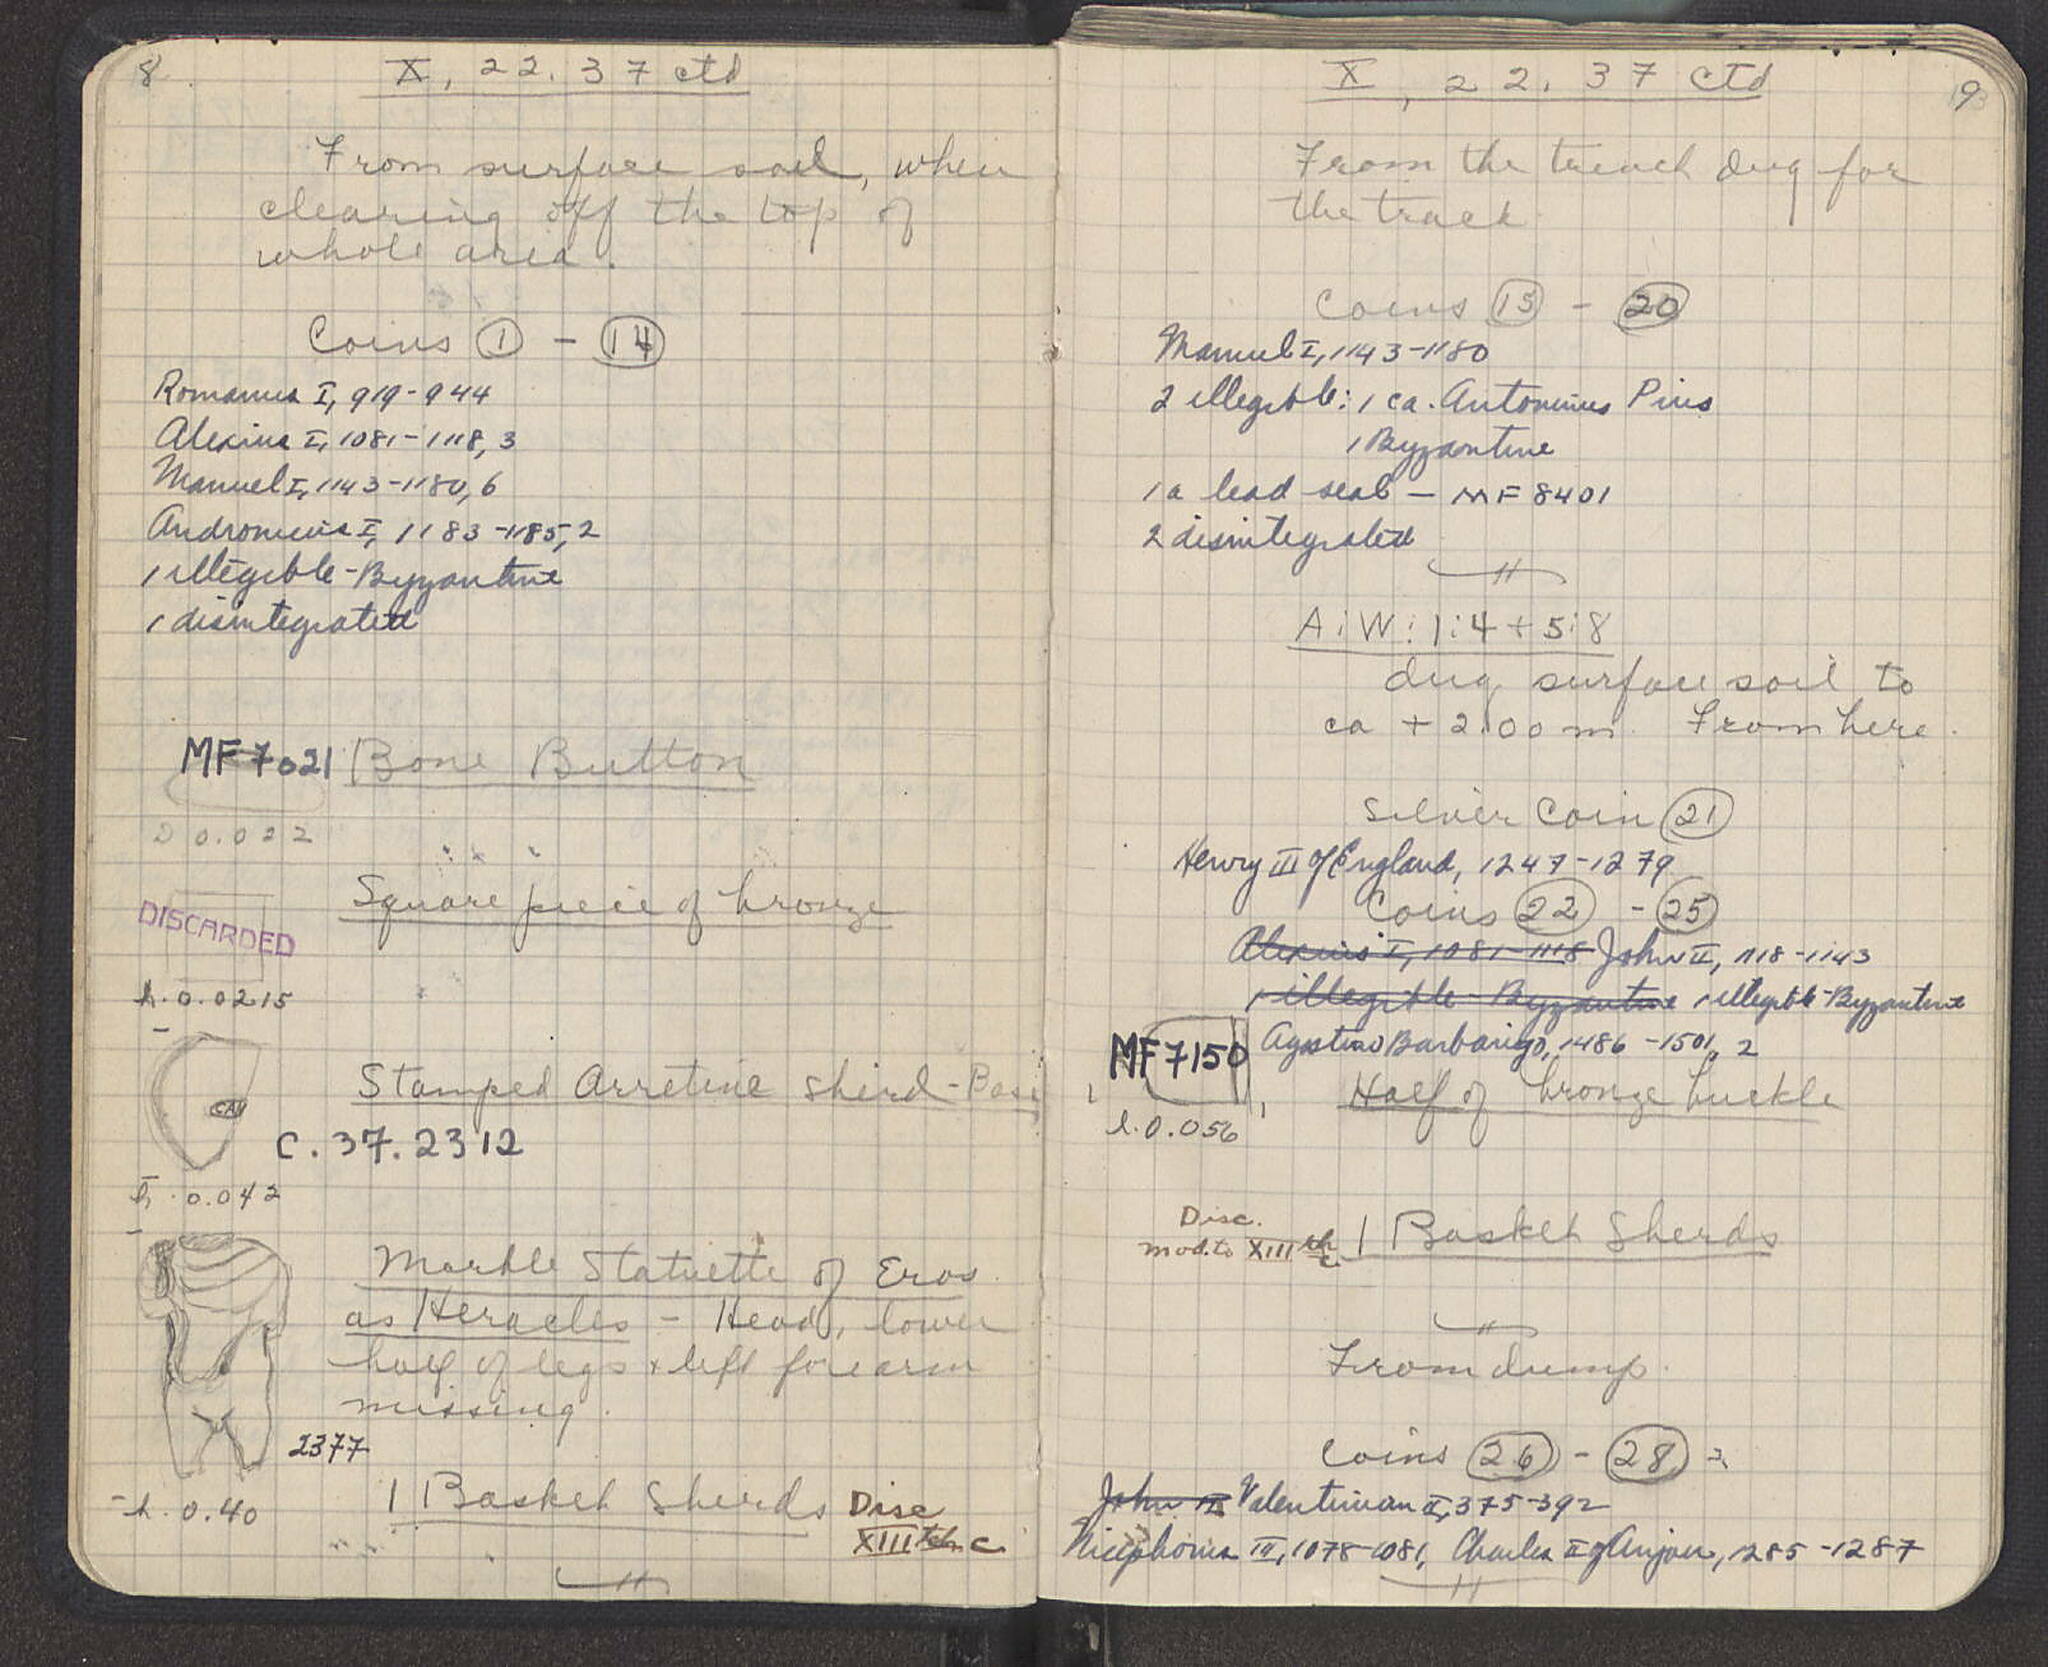 8
X, 22. 37 ctd
From surface soil, when
clearing off the top of
whole area.
Coins 1 - 14
Romanus I, 919-944
Alexius I, 1081-1118, 3
Manuel I, 1143-1180, 6
Andronicus I, 1183-1185, 2
1 illegible - Byzantine
1 disintegrated
MF 7021 Bone Button
D 0.022
Square piece of bronze
DISCARDED
h. 0.0215
Stamped Arretine Sherd - Base
CAV
C. 37. 2312
h. 0.042
Marble Statuette of Eros
as Heracles - Head, lower
half of legs + left forearm
missing.
2377
h. 0.40
1 Basket Sherds Disc
XIIIth c.
9
X, 22. 37 ctd
From the trench dug for
the track
Coins 15 - 20
Manuel I, 1143-1180
2 illegible: 1 ca. Antoninus Pius
1 Byzantine
1 a lead seal - MF 8401
2 disintegrated
A:W:1:4 + 5:8
dug surface soil to
ca + 2.00 m. From here
Silver Coin 21
Henry III of England, 1247-1279
Coins 22 - 25
Alexius I, 1081-1118 John II, 1118-1143
1 illegible - Byzantine 1 illegible - Byzantine
Agostino Barbarigo, 1486-1501, 2
MF 7150
Half of bronze buckle
l. 0.056
Disc.
mod. to XIIIth c. 1 Basket Sherds
From dump.
Coins 26 - 28
John II Valentinian II, 375-392
Nicephorus III, 1078-1081, Charles II of Anjou, 1285-1287